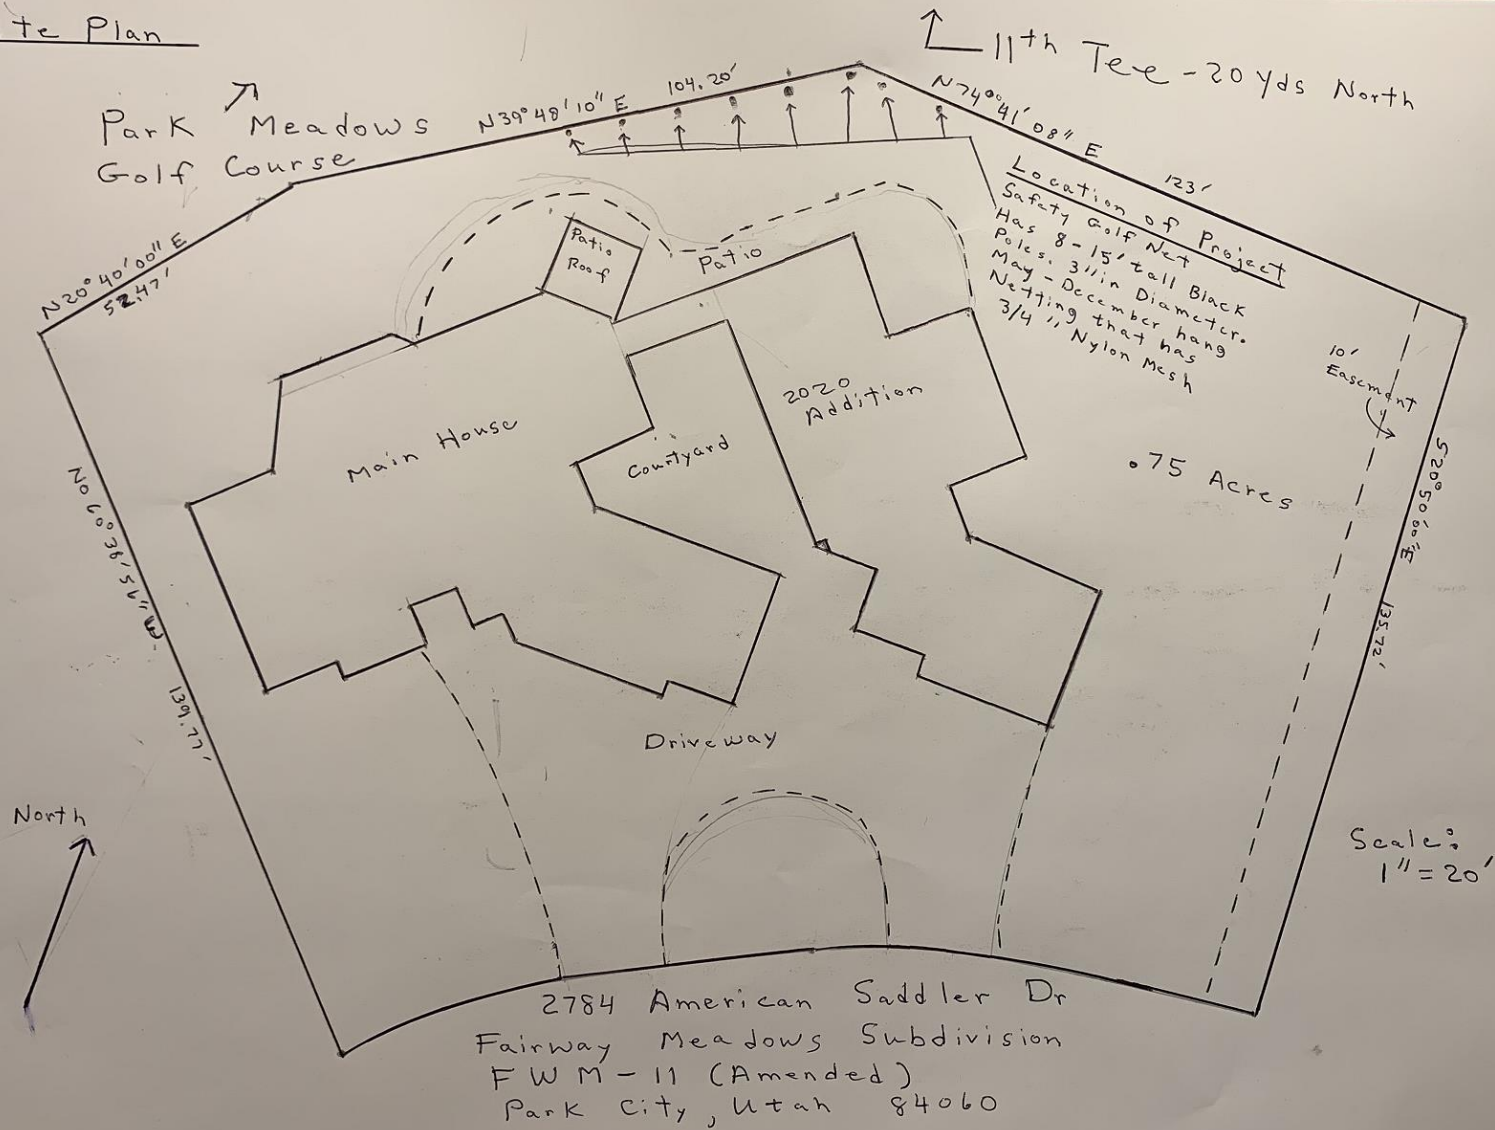 te Plan
11th Tee - 20 yds North
Park Meadows
Golf Course
N 39° 48' 10" E
104.20'
N 74° 41' 08" E
123'
N 20° 40' 00" E
52.47'
Location of Project
Safety Golf Net
Has 8 - 15' tall Black
Poles. 3" in Diameter.
May - December hang
Netting that has
3/4" Nylon Mesh
Patio
Roof
Patio
10'
Easement
2020
Addition
Main House
Courtyard
.75 Acres
S 20° 50' 00" E
135.72'
139.77'
Driveway
North
Scale:
1" = 20'
2784 American Saddler Dr
Fairway Meadows Subdivision
FWM - 11 (Amended)
Park City, Utah 84060